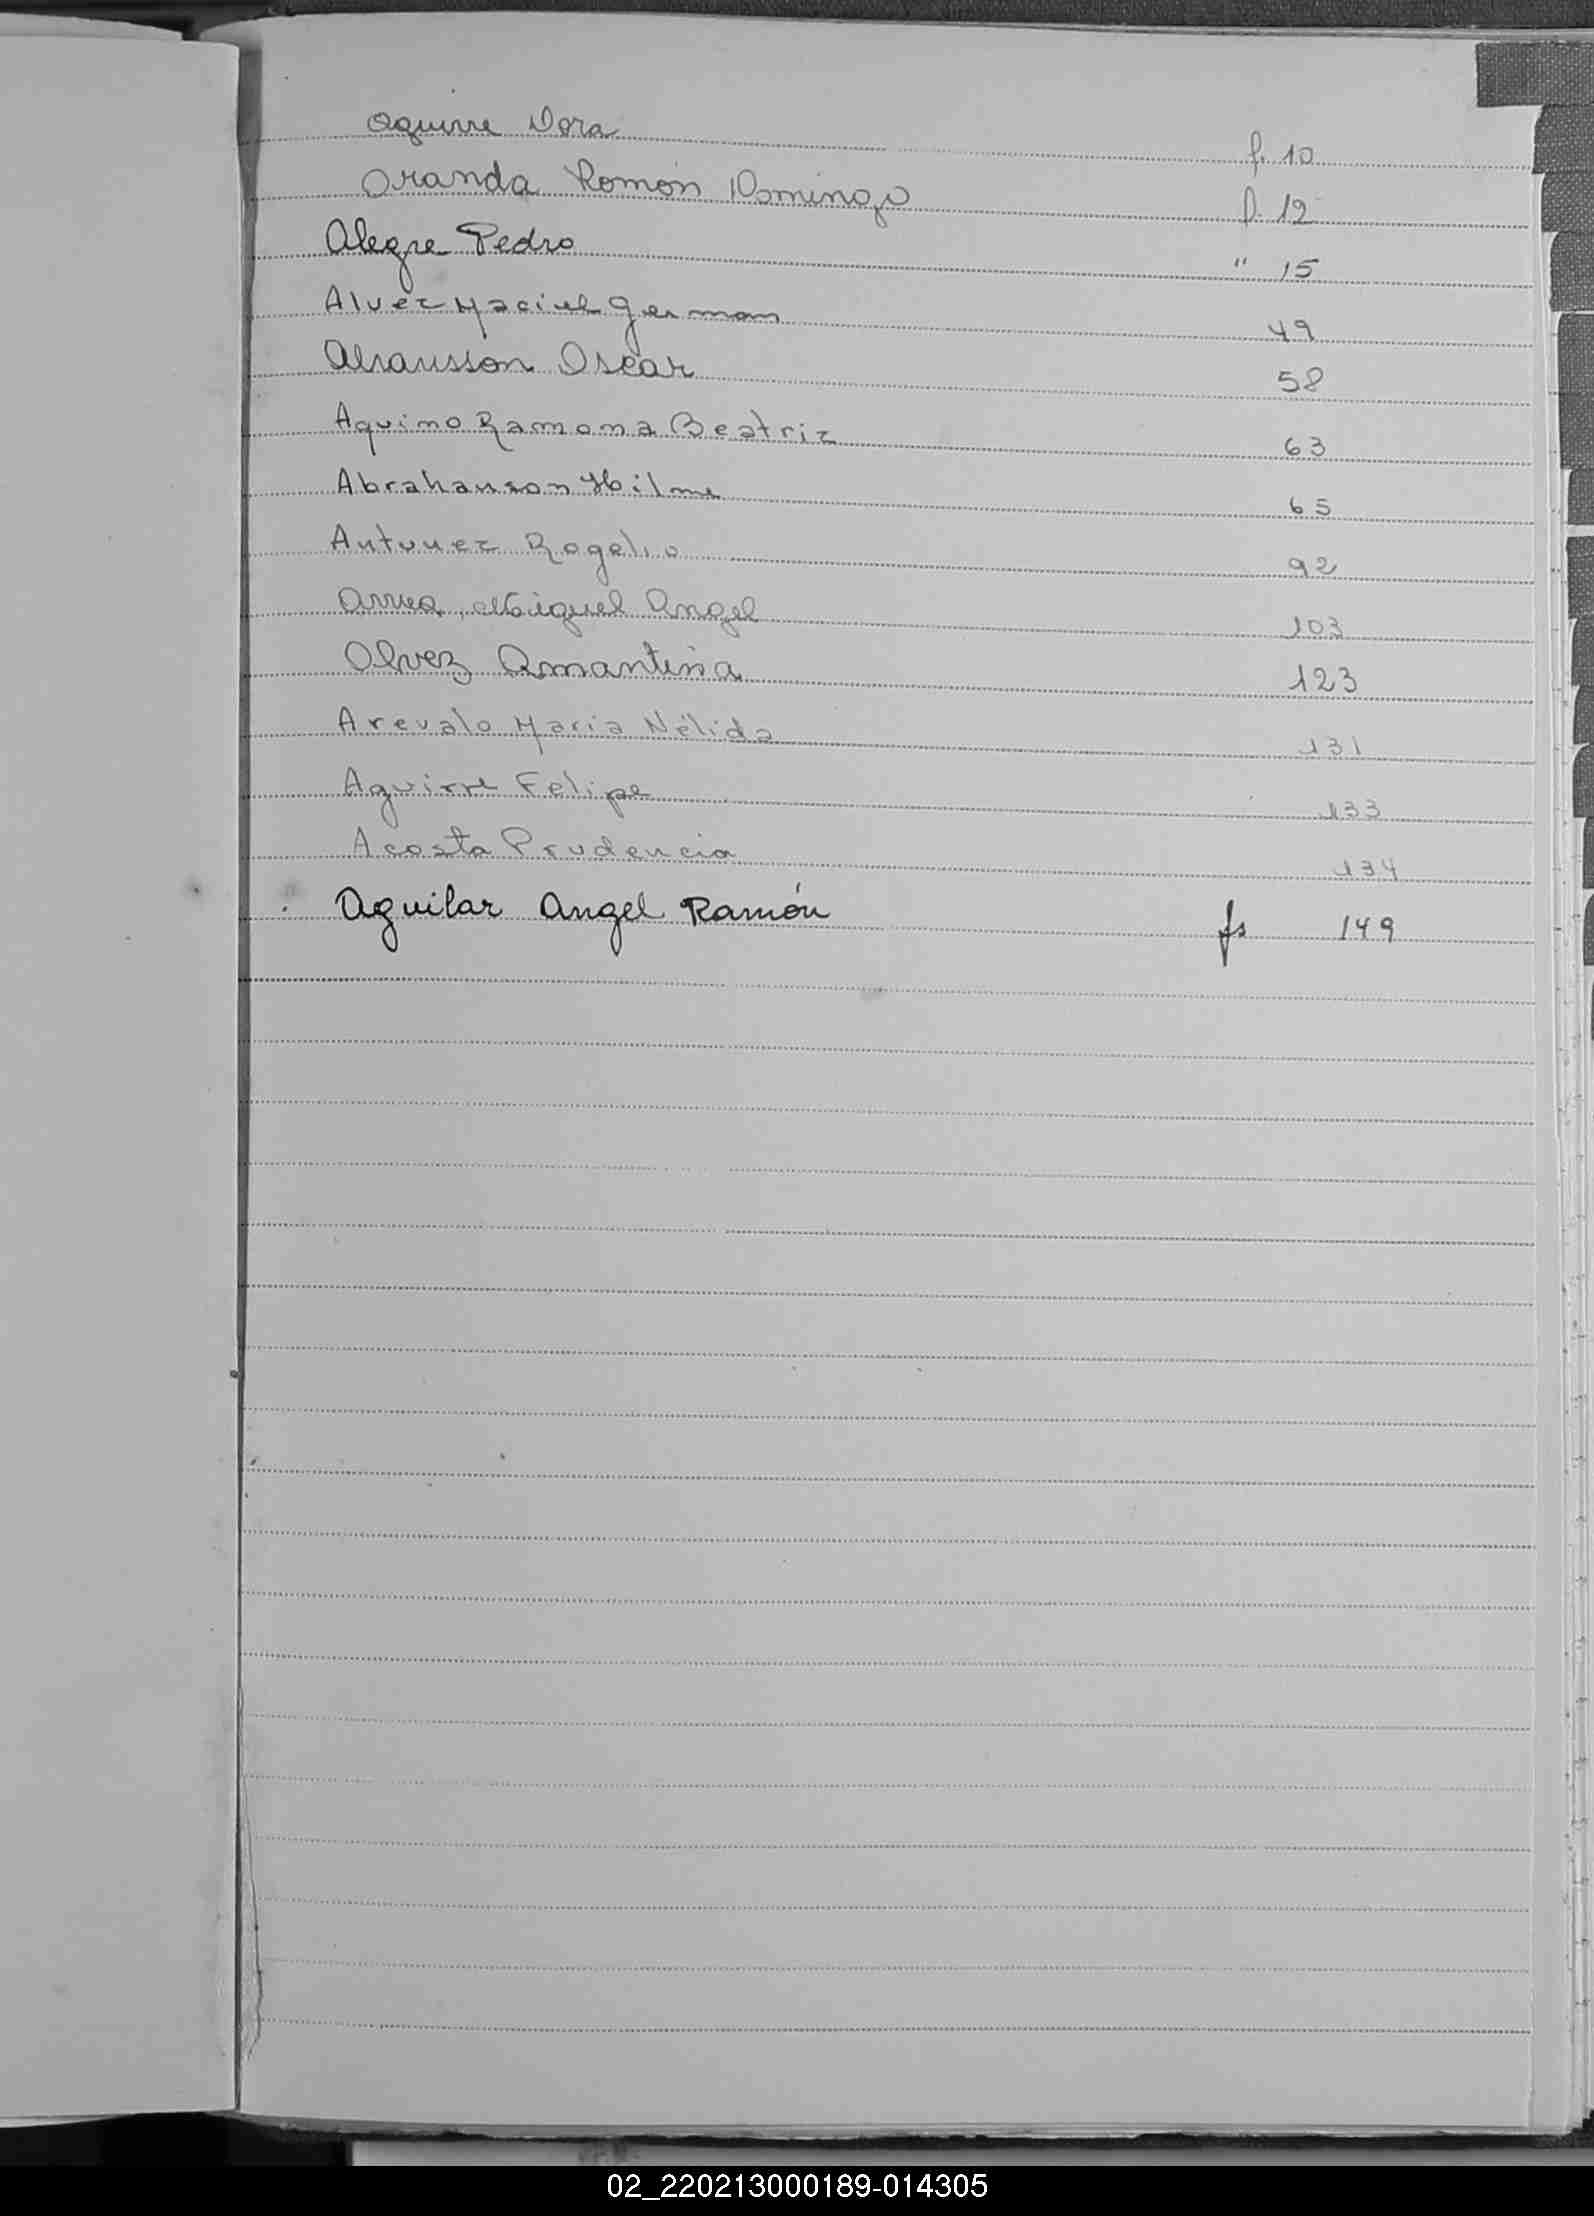 Aguirre Dora f. 10
Aranda Ramón Domingo f. 12
Alegre Pedro " 15
Alvez Maciel German 49
Oscar 58
Aquino Ramona Beatriz 63
Abrahanson Hilma 65
Antunez Rogelio 92
Arrua, Miguel Angel 103
Alvez Amantina 123
Arevalo Maria Nélida 131
Aguirre Felipe 133
Acosta Prudencia 134
Aguilar Angel Ramón fs 149
02_220213000189-014305